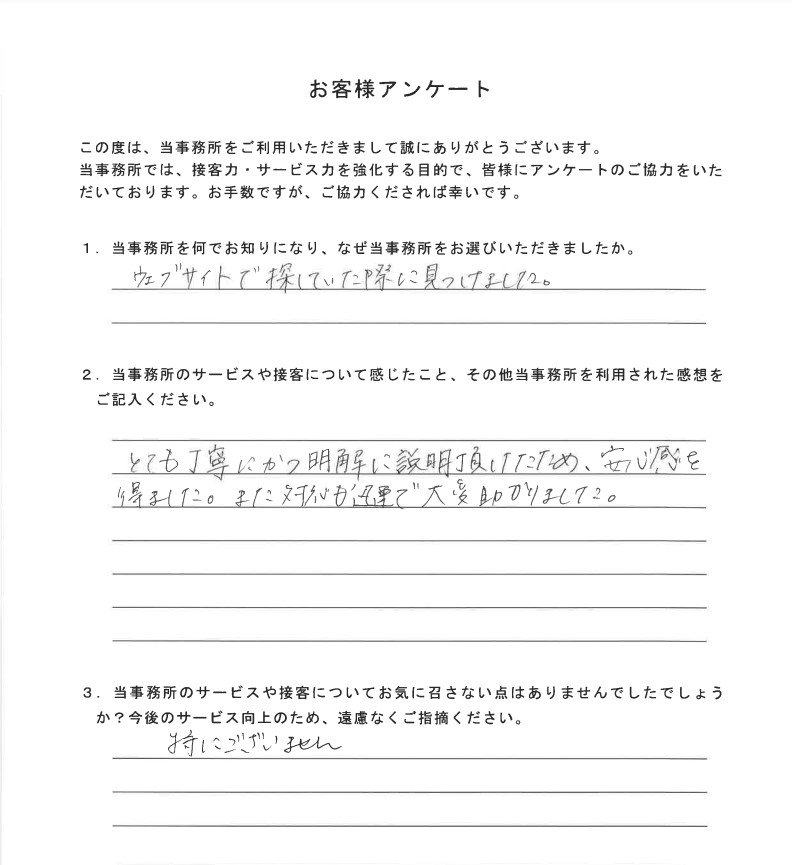 お客様アンケート
この度は、当事務所をご利用いただきまして誠にありがとうございます。
当事務所では、接客力・サービス力を強化する目的で、皆様にアンケートのご協力をいた
だいております。お手数ですが、ご協力くだされば幸いです。
１．当事務所を何でお知りになり、なぜ当事務所をお選びいただきましたか。
ウェブサイトで探していた際に見つけました。
２．当事務所のサービスや接客について感じたこと、その他当事務所を利用された感想を
ご記入ください。
とても丁寧にかつ明解に説明頂けたため、安心感を
得ました。また対応も迅速で大変助かりました。
３．当事務所のサービスや接客についてお気に召さない点はありませんでしたでしょう
か？今後のサービス向上のため、遠慮なくご指摘ください。
特にございません